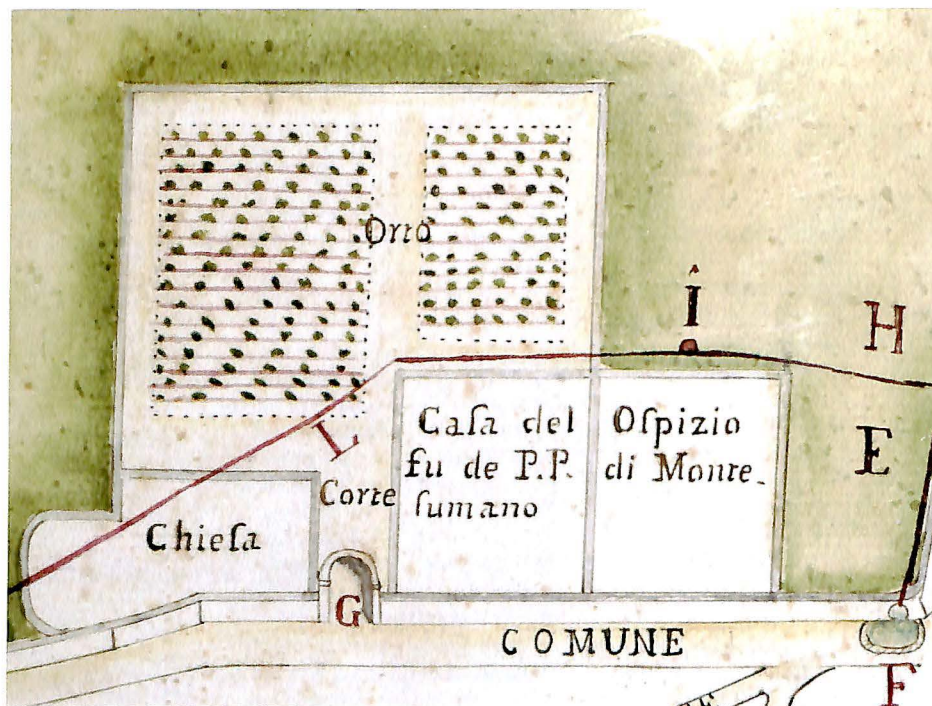 Orto
I
H
L
Casa del
fu de P.P.
sumano
Ospizio
di Monte-
E
Corte
Chiesa
G
COMUNE
F